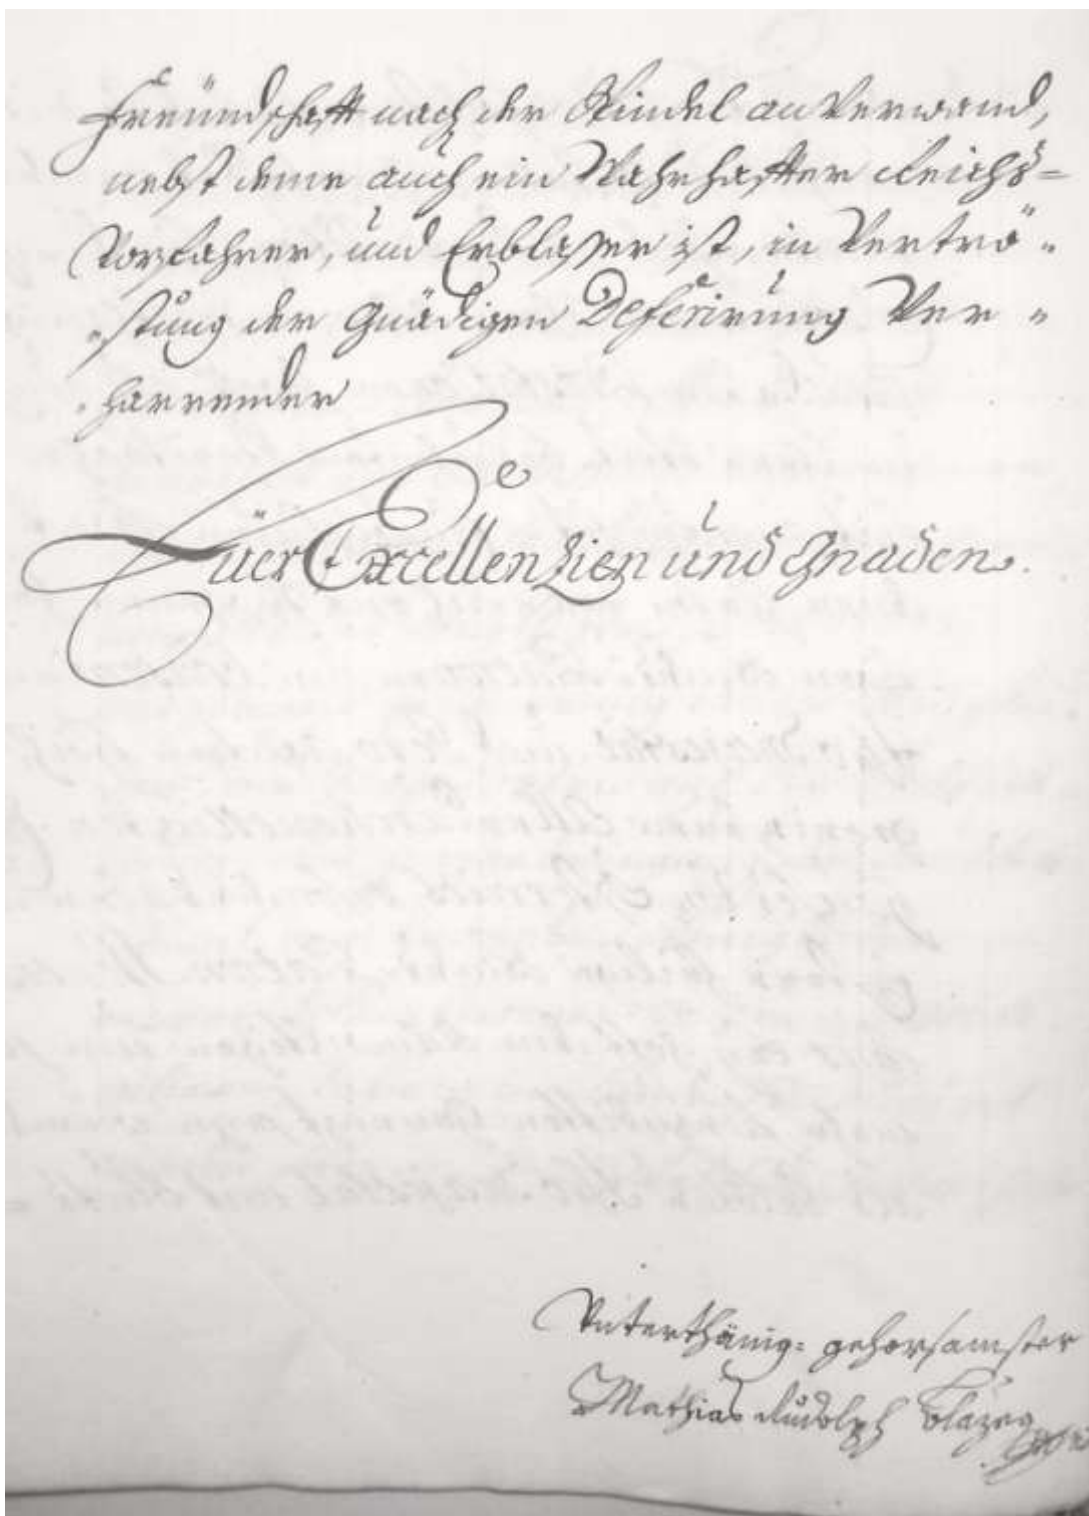 Freündschafft nach der Spindel anverwand,
nebst deme auch ein Wahrhaffter Reichs=
Vorfahrer, und Erblasser ist, in Vertrö„
„stung der Gnädigen Deferirung Ver„
„harrender
Eüer Excellenzien und Gnaden.
Unterthänig: gehorsamster
Mathias Rudolph Blažeg